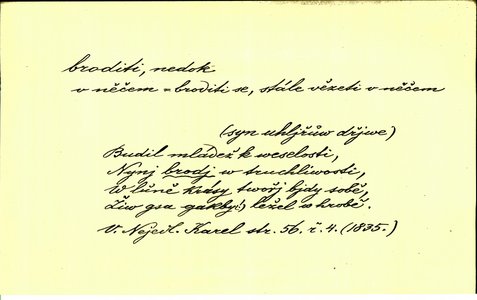 broditi, nedok
v něčem = broditi se, stále vězeti v něčem
(syn uhljřůw dřjwe)
Budil mládež k weselosti,
Nynj brodj w truchliwosti,
W lůně krásy twořj bjdy sobě,
Žiw gsa gakby(!) ležel w hrobě.
V. Nejedl. Karel str. 56. ř. 4. (1835.)